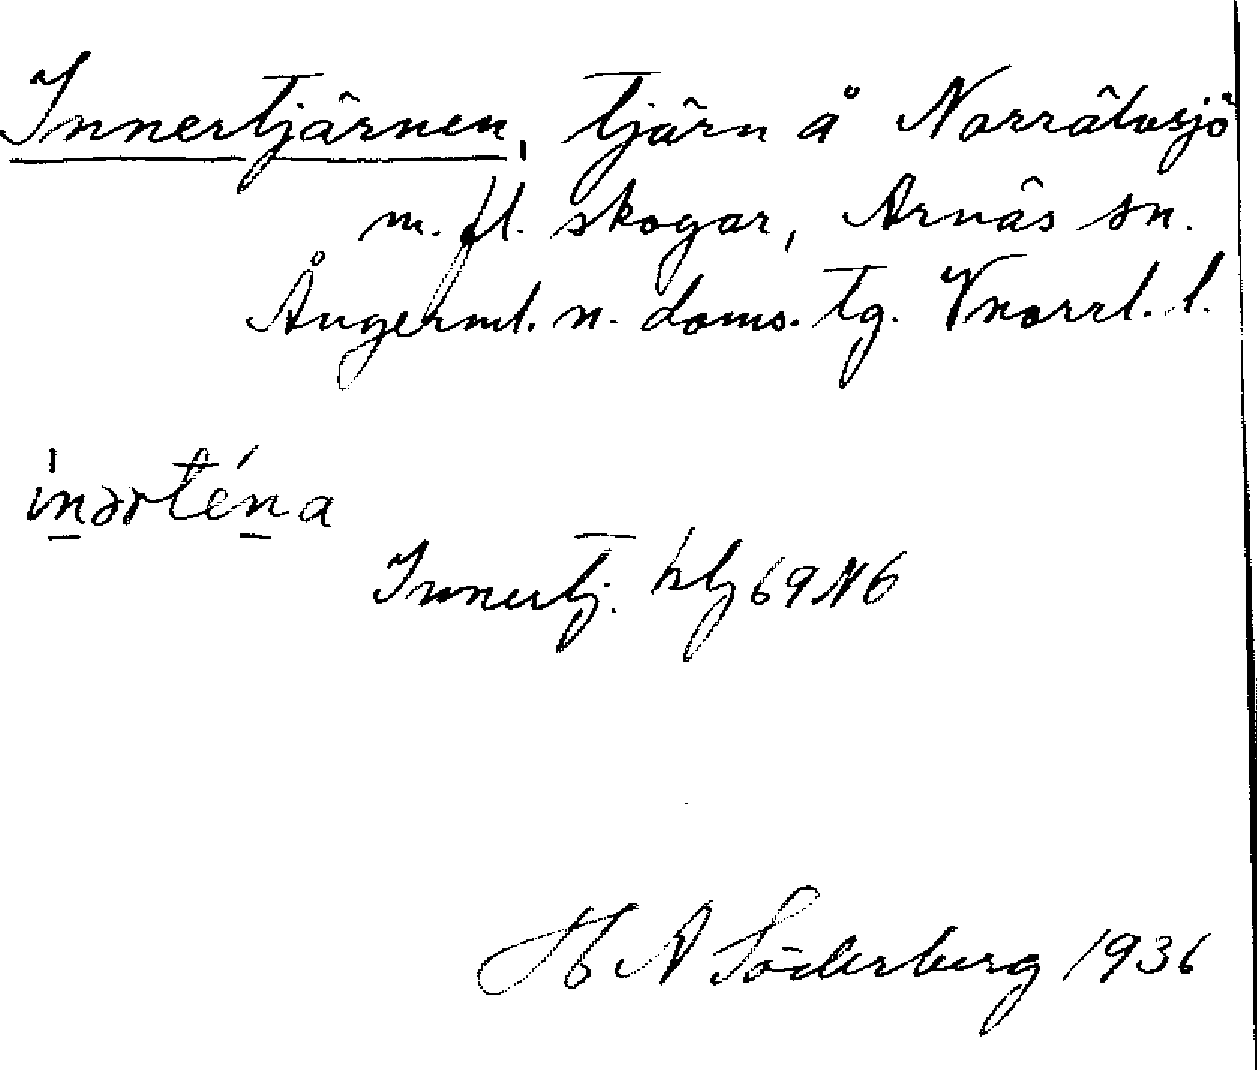 Innertjärnen, tjärn å Norrätvsjö
m. fl. skogar, Arnäs sn.
Ångerml. n. doms. tg. Vnorrl. l.
inərténa
Innertj. hlg 69 N 6
H A Söderberg 1936